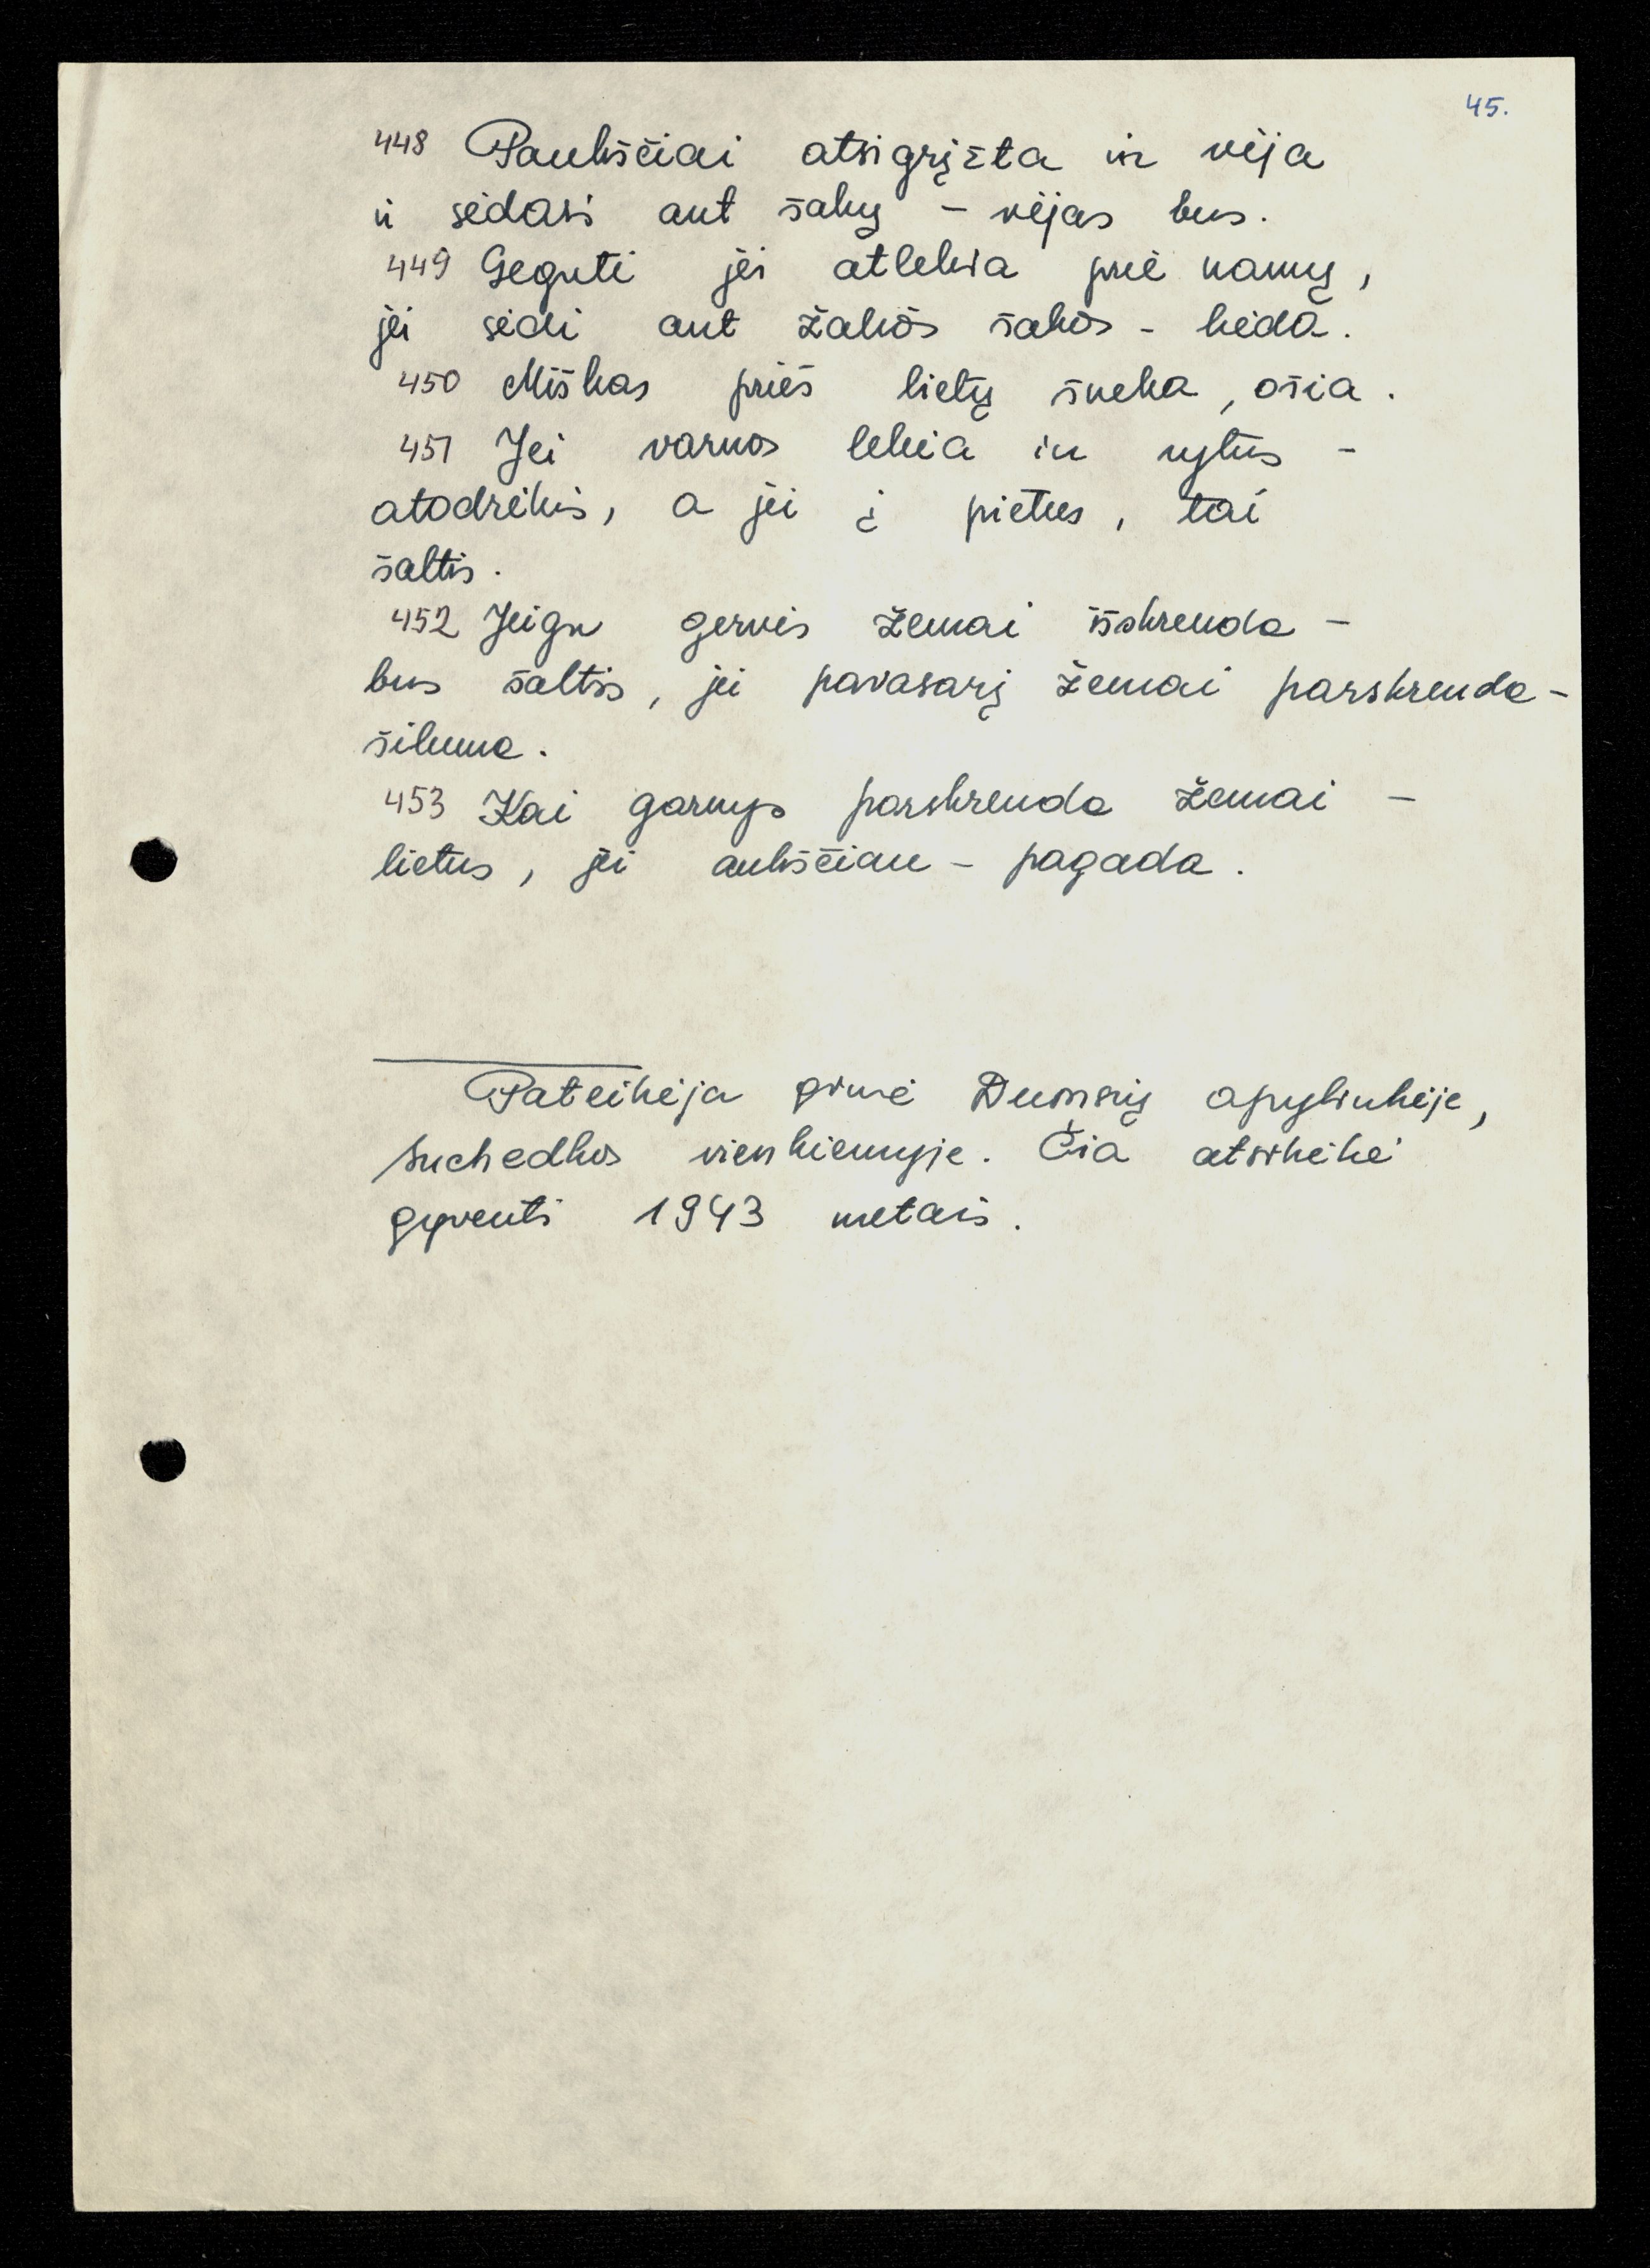 45.
448 Paukščiai atsigrįžta in vėja
ir sėdasi ant šakų – vėjas bus.
449 Gegutė jei atlekia prie namų,
jei sėdi ant žalios šakos – bėda.
450 Miškas prieš lietų šneka, ošia.
451 Jei varnos lekia in rytus –
atodrėkis, a jei į pietus, tai
šaltis.
452 Jeigu gervės žemai išskrenda –
bus šaltis, jei pavasarį žemai parskrenda –
šiluma.
453 Kai garnys parskrenda žemai –
lietus, jei aukščiau – pagada.
Pateikėja gimė apylinkėje,
vienkiemyje. Čia atsikėlė
gyventi 1943 metais.